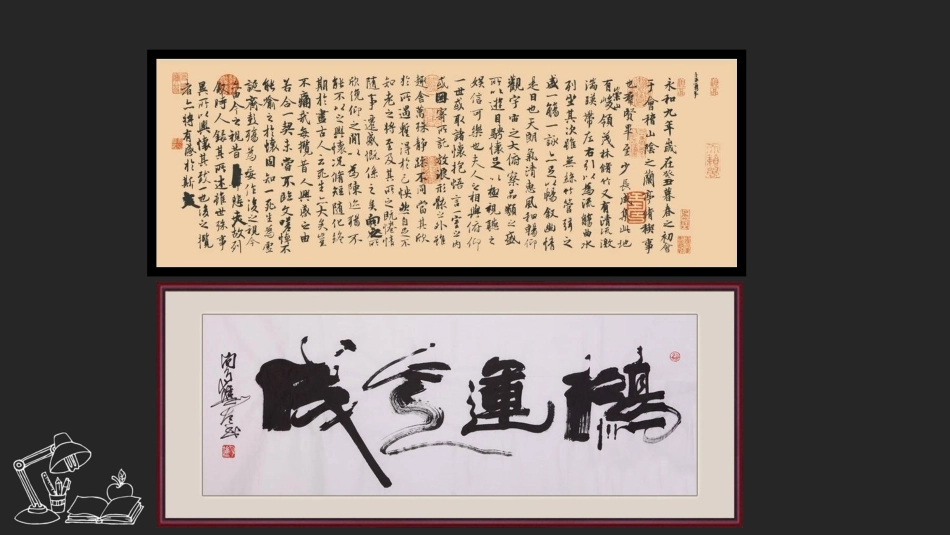 永和九年歲在癸丑暮春之初會
于會稽山陰之蘭亭脩稧事
也羣賢畢至少長咸集此地
有崇山峻領茂林脩竹又有清流激
湍暎帶左右引以為流觴曲水
列坐其次雖無絲竹管弦之
盛一觴一詠亦足以暢敘幽情
是日也天朗氣清惠風和暢仰
觀宇宙之大俯察品類之盛
所以遊目騁懷足以極視聽之
娛信可樂也夫人之相與俯仰
一世或取諸懷抱悟言一室之內
或因寄所託放浪形骸之外雖
趣舍萬殊靜躁不同當其欣
於所遇暫得於己快然自足不
知老之將至及其所之既惓情
隨事遷感慨係之矣向之所
欣俛仰之閒以為陳迹猶不
能不以之興懷況脩短隨化終
期於盡古人云死生亦大矣豈
不痛哉每攬昔人興感之由
若合一契未嘗不臨文嗟悼不
能喻之於懷固知一死生為虛
誕齊彭殤為妄作後之視今
亦由今之視昔悲夫故列
敘時人錄其所述雖世殊事
異所以興懷其致一也後之攬
者亦將有感於斯文
鴻運天成